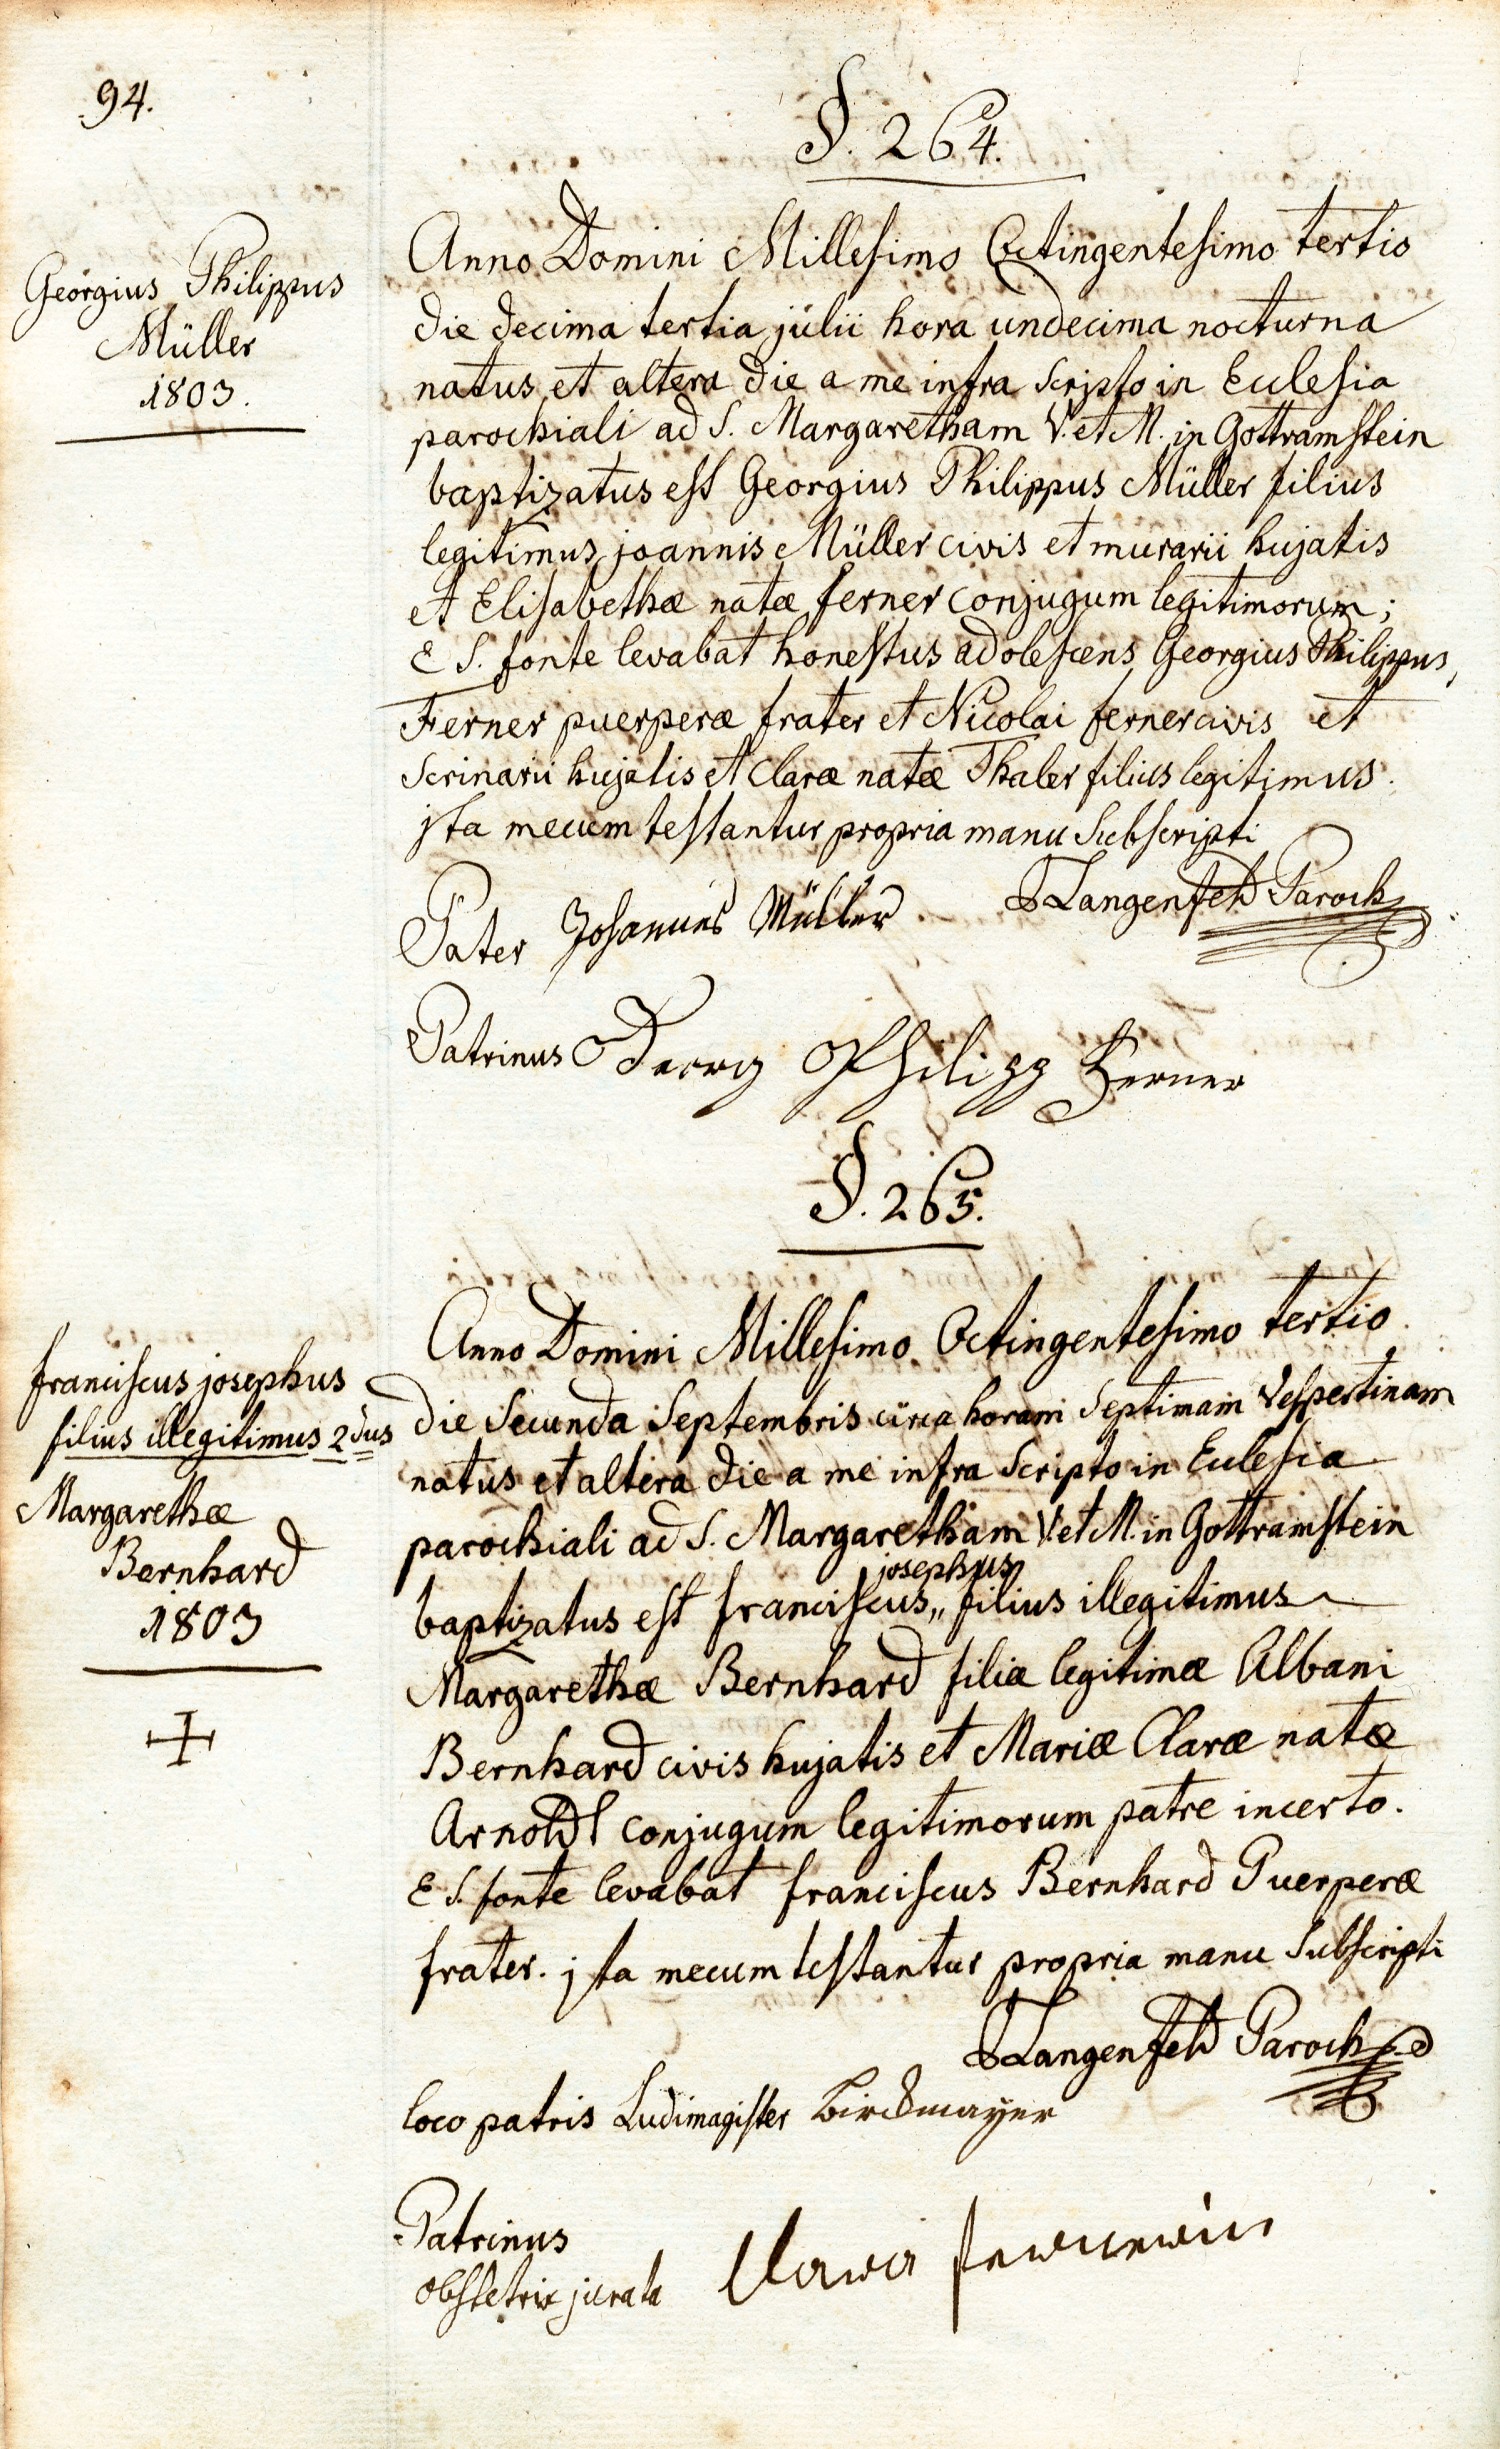 94.
§. 264.
Georgius Philippus
Müller
1803.
Anno Domini Millesimo Octingentesimo tertio
die decima tertia julii hora undecima nocturna
natus et altera die a me infra scripto in Ecclesia
parochiali ad S. Margaretham V. et M. in Gottramstein
baptizatus est Georgius Philippus Müller filius
legitimus joannis Müller civis et murarii hujatis
et Elisabethæ natæ ferner conjugum legitimorum;
E S. fonte levabat honestus adolescens Georgius Philippus,
Ferner puerperæ frater et Nicolai ferner civis et
Scrinarii hujatis et Claræ natæ Thaler filius legitimus.
jta mecum testantur propria manu Subscripti
Langenfeld Paroch
Pater Johannes Müller
Patrinus Georg Philipp Ferner
§. 265.
franciscus josephus
filius illegitimus 2dus
Margarethæ
Bernhard
1803
Anno Domini Millesimo Octingentesimo tertio
die Secunda Septembris circa horam Septimam Vespertinam
natus et altera die a me infra Scripto in Ecclesia
parochiali ad S. Margaretham V. et M. in Gottramstein
josephus
baptizatus est franciscus,, filius illegitimus
Margarethæ Bernhard filiæ legitimæ Albani
Bernhard civis hujatis et Mariæ Claræ natæ
Arnoldt conjugum legitimorum patre incerto.
E S. fonte levabat franciscus Bernhard Puerperæ
frater. jta mecum testantur propria manu Subscripti
Langenfeld Paroch
loco patris Ludimagister Birckmayer
Patrinus
obstetrix jurata